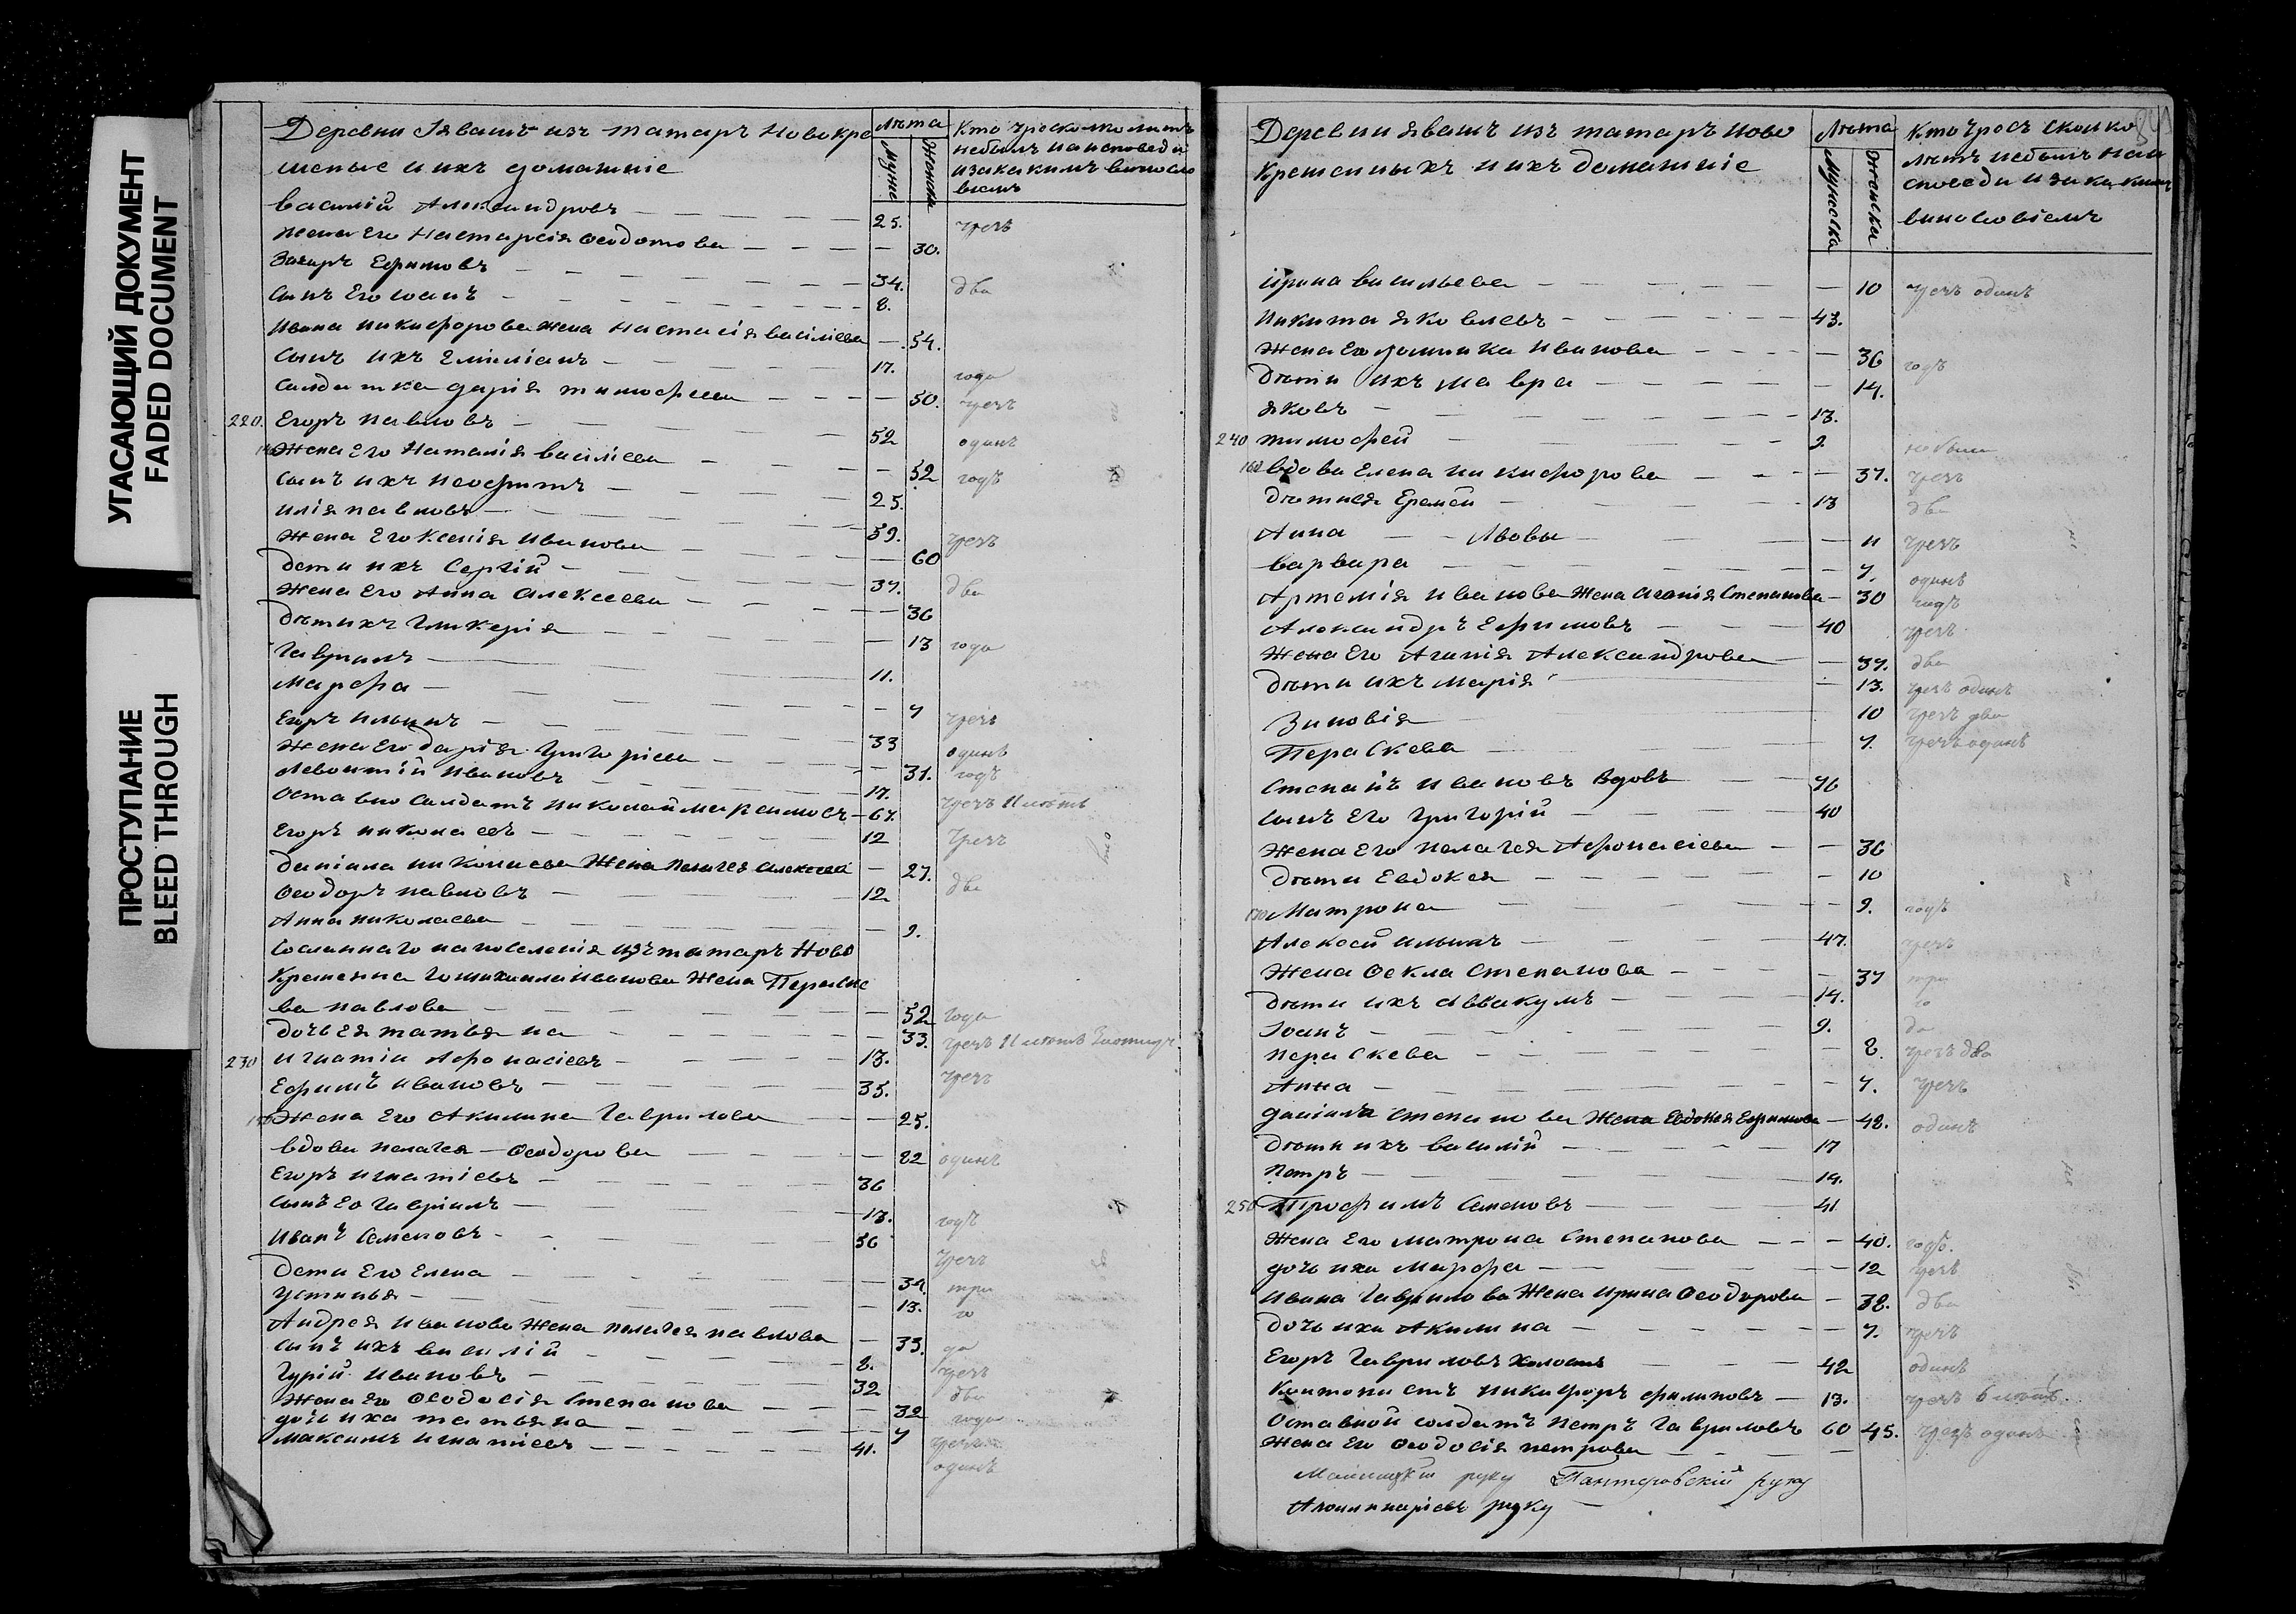 УГАСАЮЩИЙ ДОКУМЕНТ
FADED DOCUMENT
ПРОСТУПАНИЕ
BLEED THROUGH
Деревни Явашъ изъ татаръ Новокре
щеные и ихъ домашніе
Лѣта
Муже
Женска
небылъ на исповеди
Василій Александровъ 25. чрезъ
Жена Его Настасія Ѳеодотова 30.
Захаръ Ефимовъ 34. два
Сынъ Его Иоанъ 8.
Ивана Никифорова Жена Настасія Василіева 54.
Сынъ ихъ Емиліанъ 17. года
Салдатка Дарія Тимофеева 50. чрезъ
220. Егоръ Павловъ 52 одинъ
Жена Его Наталія Василіева 52 годъ
Сынъ ихъ Неофитъ 25.
Илія Павловъ 59. чрезъ
Жена Его Ксенія Иванова 60
Дети ихъ Сергій 37. два
Жена Его Анна Алексеева 36
Дѣти ихъ Гликерія 13 года
Гаврилъ 11.
Марфа 7 чрезъ
Егоръ Ильинъ 33 одинъ
Жена Его Дарія Григоріева 31. годъ
Левонтій Ивановъ 17.
Оставно Салдатъ Николай Максимовъ 67. чрезъ 11 лѣтъ
Егоръ Николаевъ 12 чрезъ
Даніила Николаева Жена Пелагея Алексеева 27. два
Ѳеодоръ Павловъ 12
Анна Николаева 9.
Сосланнаго на поселенія изъ татаръ Ново
Крещеннаго Михаила Иванова Жена Параске
ва Павлова 52 года
Дочь Ея Татьяна 33. чрезъ 11 лѣтъ
230 Игнатій Афонасіевъ 13. чрезъ
Ефимъ Ивановъ 35.
Жена Его Акилина Гаврилова 25.
Вдова Пелагея Ѳеодорова 82 одинъ
Егоръ Игнатіевъ 36
Сынъ Ео Гавріилъ 13. годъ
Иванъ Семеновъ 56 чрезъ
Дети Его Елена 34. три
Устинья 13. го
Андрея Иванова Жена Пелагея Павлова 33. да
Сынъ ихъ Василій 8. чрезъ
Гурій Ивановъ 32 два
Жена Ео Ѳеодосія Степанова 32 года
дочь ихъ Татьяна 7 чрезъ
Максимъ Игнатіевъ 41. одинъ
Деревни Явашъ изъ татаръ Ново
Крещеныхъ и ихъ домашніе
Лѣта
Мужеска
Женска
Кто чрезъ сколко
лѣтъ небылъ на и
споведи и за какимъ
виновсвіемъ
Ирина Василіева 10 чрезъ одинъ
Никита Яковлевъ 43.
Жена Ео Домника Иванова 36 годъ
Дѣти ихъ Мавра 14.
Яковъ 13.
240 Тимофей 9. небыли
160 Вдова Елена Никифорова 37. чрезъ
Дѣти Ея Еремѣй 13 два
Анна Львовы 11 чрезъ
Варвара 7. одинъ
Артемія Иванова Жена Агапія Степанова 30 годъ
Александръ Ефимовъ 40 чрезъ
Жена Его Агапія Александрова 37. два
Дѣти ихъ Марія 13. чрезъ одинъ
Зиновія 10 чрезъ два
Параскева 7. чрезъ одинъ
Степанъ Ивановъ Вдовъ 76
Сынъ Его Григорій 40
Жена Его Пелагея Афонасіева 36
Дѣти Евдокея 10
170 Матрона 9. годъ
Алексей Ильинъ 47. чрезъ
Жена Ѳекла Степанова 37 три
Дѣти ихъ Аввакумъ 14. го
Іоанъ 9. да
Параскева 8. чрезъ два
Анна 7. чрезъ
Даніила Степанова Жена Евдокея Ефимова 48. одинъ
Дѣти ихъ Василій 17
Петръ 14.
250 Трофимъ Семеновъ 41
Жена Его Матрона Степанова 40. годъ.
дочь ихъ Марфа 12 чрезъ
Ивана Гаврилова Жена Ирина Ѳеодорова 38. два
Дочь ихъ Акилина 7. чрезъ
Егоръ Гавриловъ холостъ 42 одинъ
Кантонистъ Никифоръ Филиповъ 13. чрезъ 6 лѣтъ
Оставной солдатъ Петръ Гавриловъ 60 45. чрезъ одинъ
Жена Его Ѳеодосія Петрова
руку Пантусовскій руку
Аполинаріевъ руку